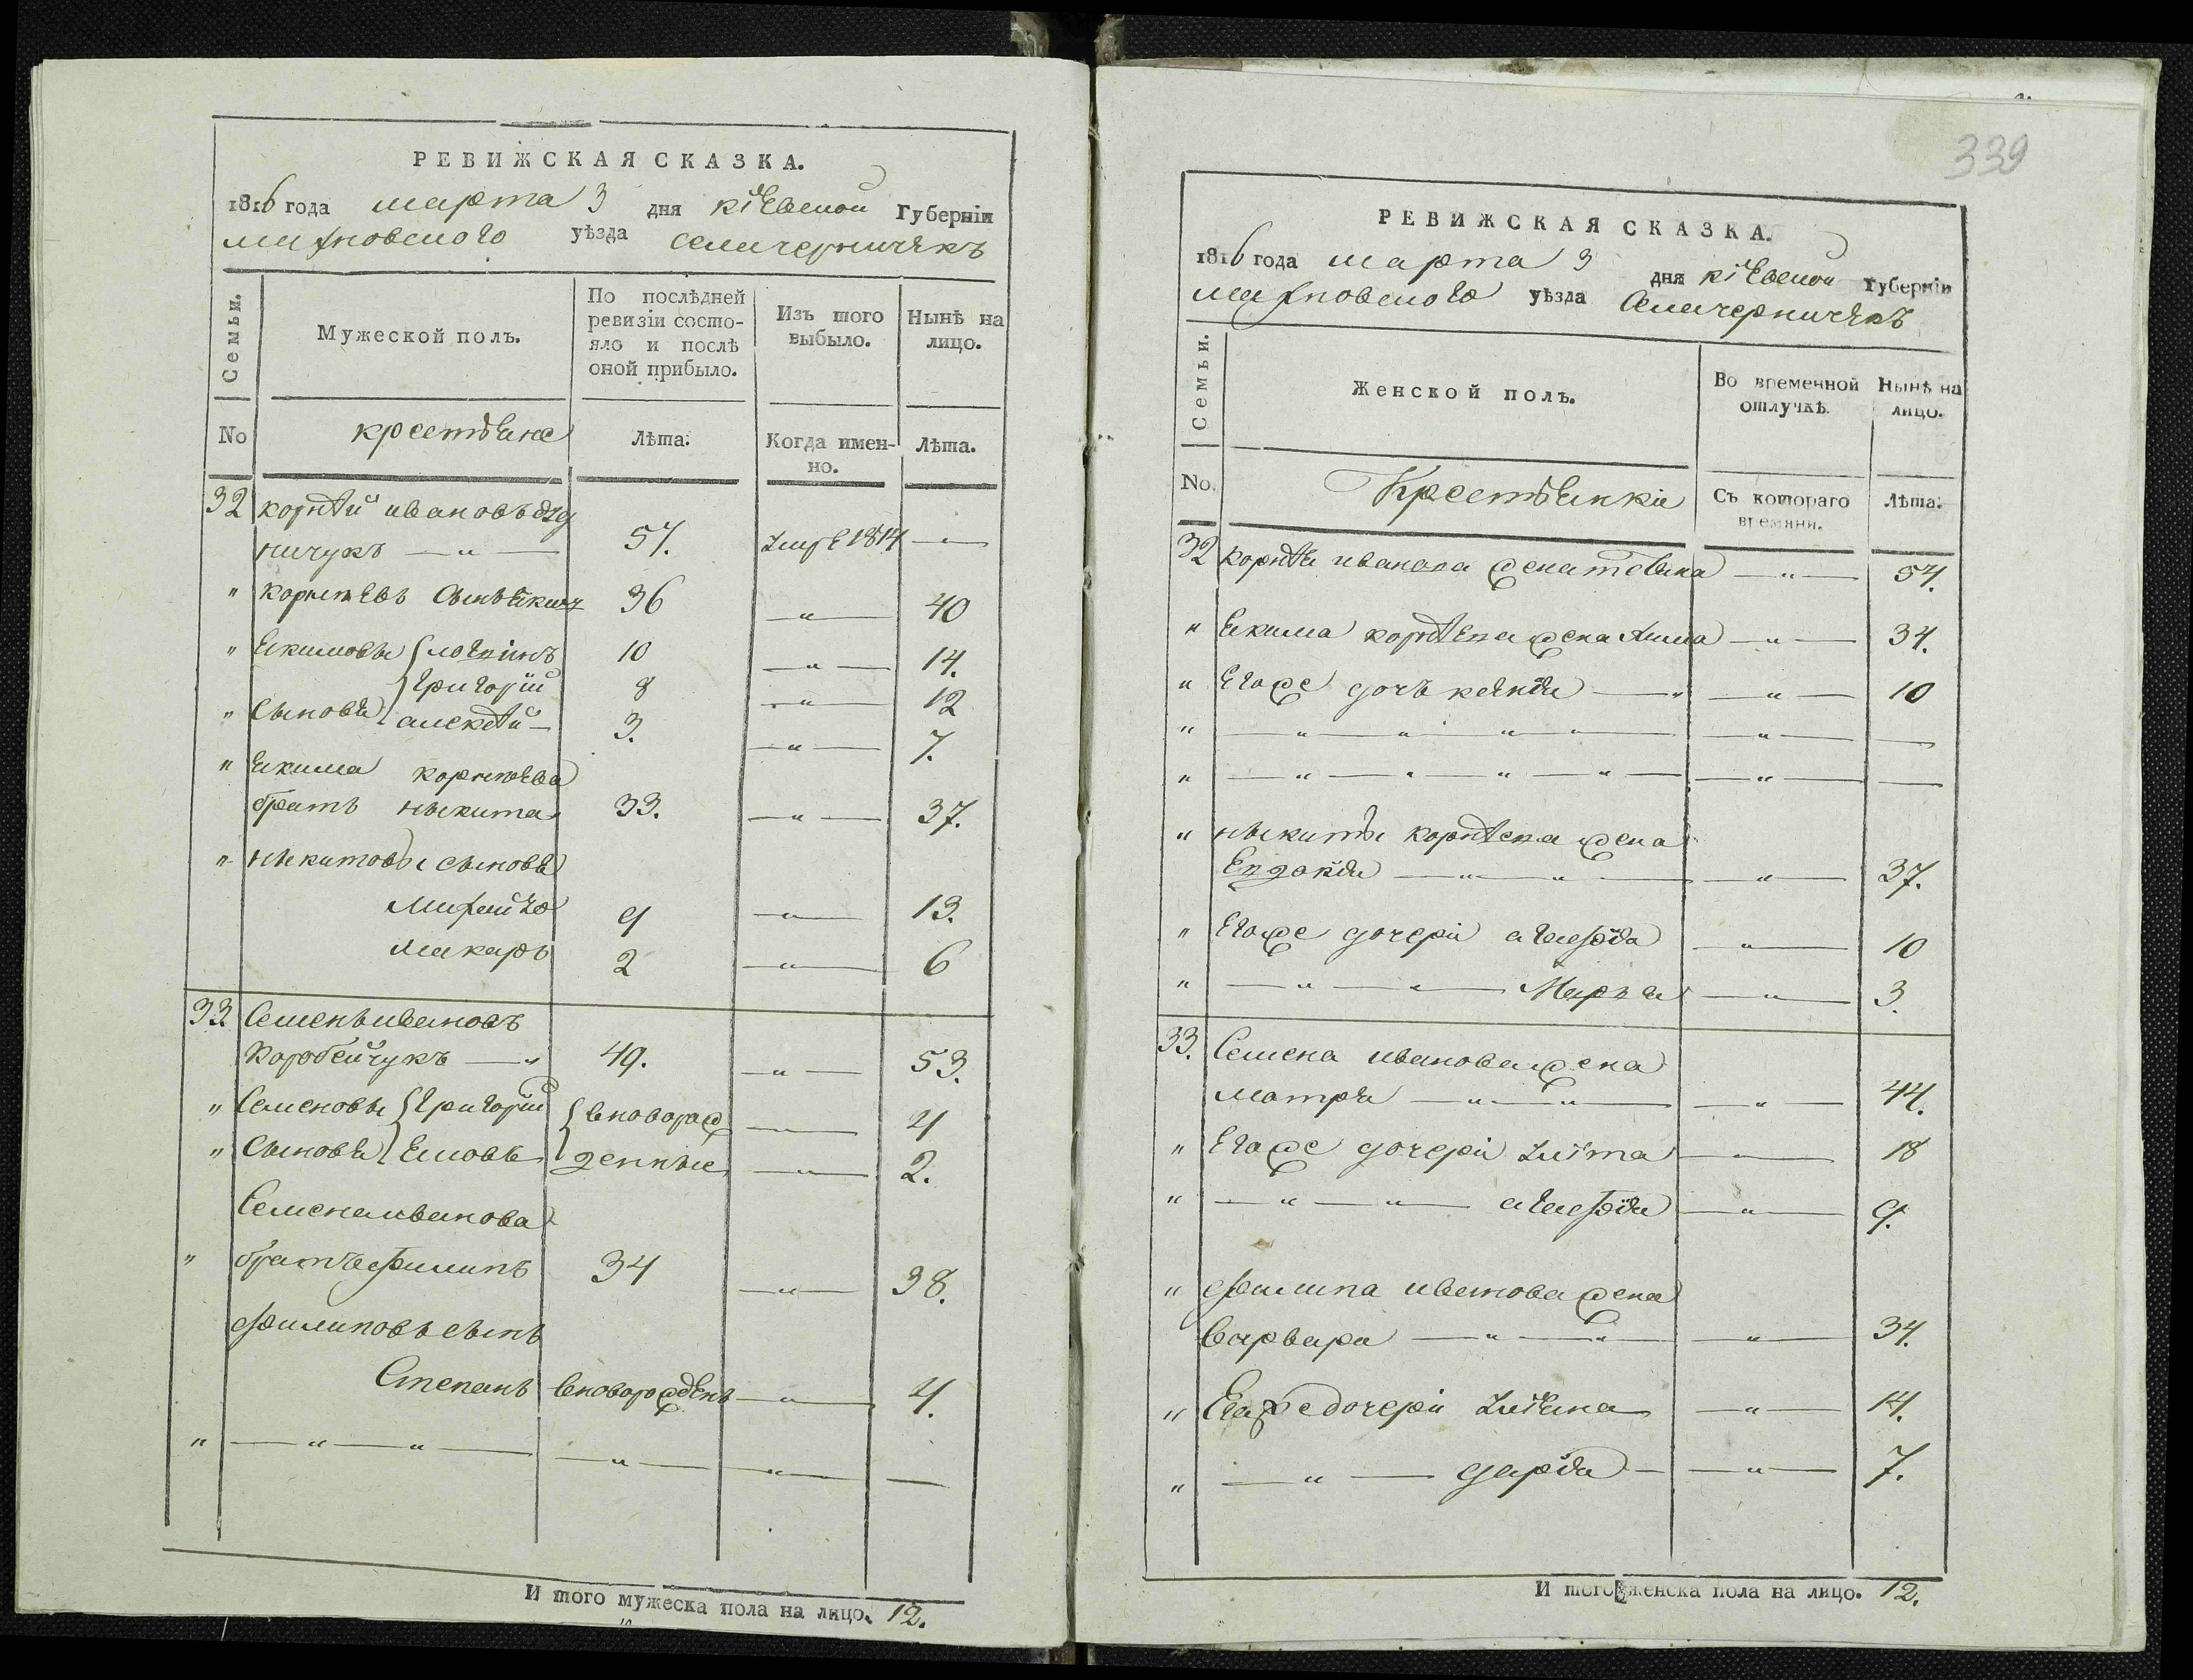 РЕВИЖСКАЯ СКАЗКА.
1816 года марта 3 дня кіевской Губерніи
махновского уѣзда села чернячъкъ
Семьи.
Мужеской полъ.
По послѣдней ревизіи состо-
яло и послѣ оной прибыло.
Изъ того выбыло.
Нынѣ на лицо.
No
крестьяне
Лѣта.
Когда имен-
но.
Лѣта.
32 корнѣй ивановъ
ничукъ — „ — 57. 1814 —
„ корнѣевъ сынъ екимъ 36 — „ — 40
„ екимовы 10 — „ — 14.
григорій 8 — „ — 12
„ сыновья алексѣй — 3. — „ — 7.
„ екима корнѣева
братъ никита 33. — „ — 37.
„ никитовы сыновя
Михайло 9 — „ — 13.
макаръ 2 — „ — 6
33. Семенъ ивановъ
Коробейчукъ — „ 49. — „ — 53.
„ Семеновы григорій вноворож — „ — 4
„ сыновья денные — „ — 2.
Семена иванова
„ братъ филипъ 34 — „ — 38.
филиповъ сынъ
Степанъ вноворожденъ — „ — 4.
„ — „ — „ — — „ — „ — —
И того мужеска пола на лицо. 12.
339
РЕВИЖСКАЯ СКАЗКА.
1816 года марта 3 дня кіевской Губерніи
махновского уѣзда села чернячъкъ
Семьи.
Женской полъ.
Во временной отлучкѣ.
Нынѣ на лицо.
No.
Крестьянки
Съ котораго времяни.
Лѣта.
32 корнѣя иванова жена — „ — 54.
„ екима корнѣева жена Анна — „ — 34.
„ Егоже дочь — „ — „ — 10
„ — „ — „ — „ — „ — — „ — —
„ — „ — „ — „ — „ — — „ — —
„ никиты корнѣева жена
Евдокія — „ — „ — — „ — 37.
„ Егоже дочери агафія — „ — 10
„ — „ — „ — Марья — „ — 3.
33. Семена иванова жена
матря — „ — „ — — „ — 44.
„ Егоже дочери — „ — 18
„ — „ — „ — агафія — „ — 9.
„ филипа иванова жена
варвара — „ — „ — — „ — 34.
„ Егоже дочери — „ — 14.
„ — „ — дарія — — „ — 7.
И того женска пола на лицо. 12.